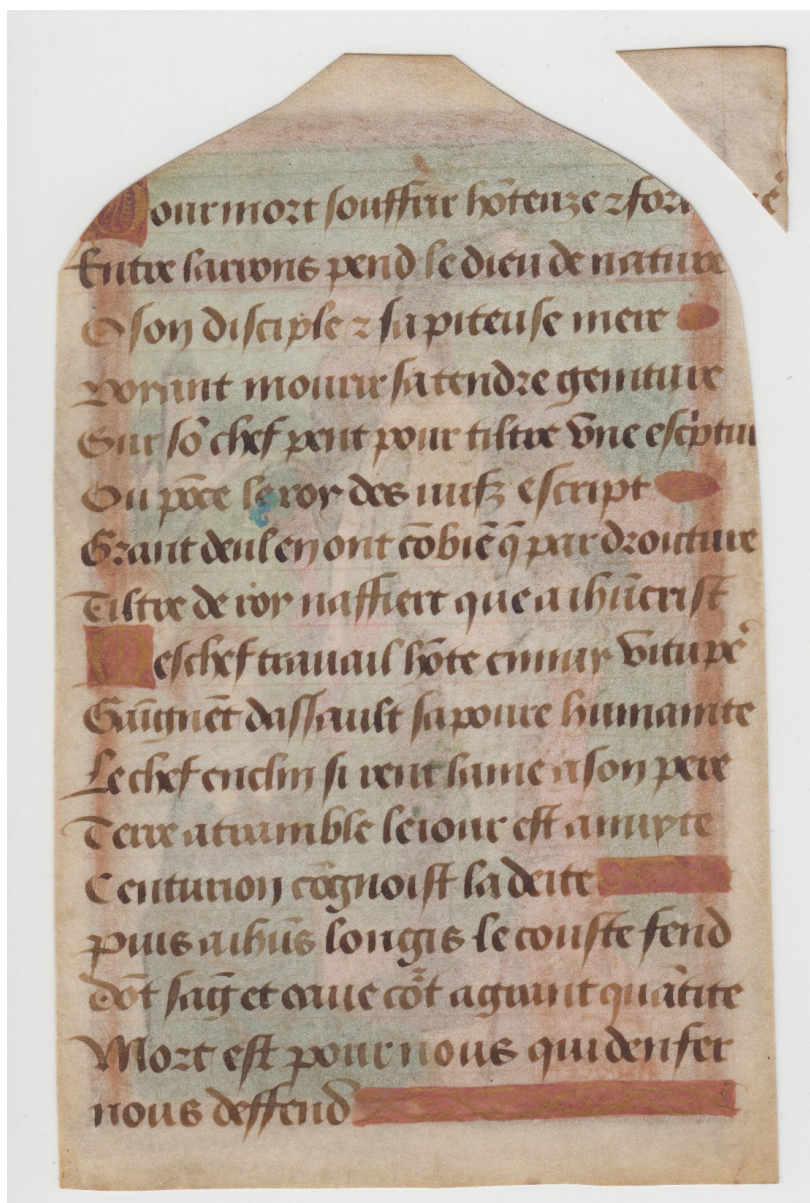 Pour mort souffrir hõteuze ⁊ for
Entre larrons pend le dieu de nature
O son disciple ⁊ sa piteuse mere
voyant mourir sa tendre geniture
Sur sõ chef pent pour tiltre vne esc̾ptur
Ou põce le roy des iuifz escript
Grant deul en ont cõbiẽ q̃ par droicture
Tiltre de roy naffiert que a ihũcrist
Meschef trauail hõte ennuy vitupe᷑
Gaĩgnẽt dassault sa poure humanite
Le chef enclin si rent lame a son pere
Terre a tramble le iour est amuyte
Centurion cõgnoist la deite
puis a ihũs longis le couste fend
dõt sãg et eaue cõ᷑t a grant quãtite
Mort est pour nous qui denfer
nous deffend